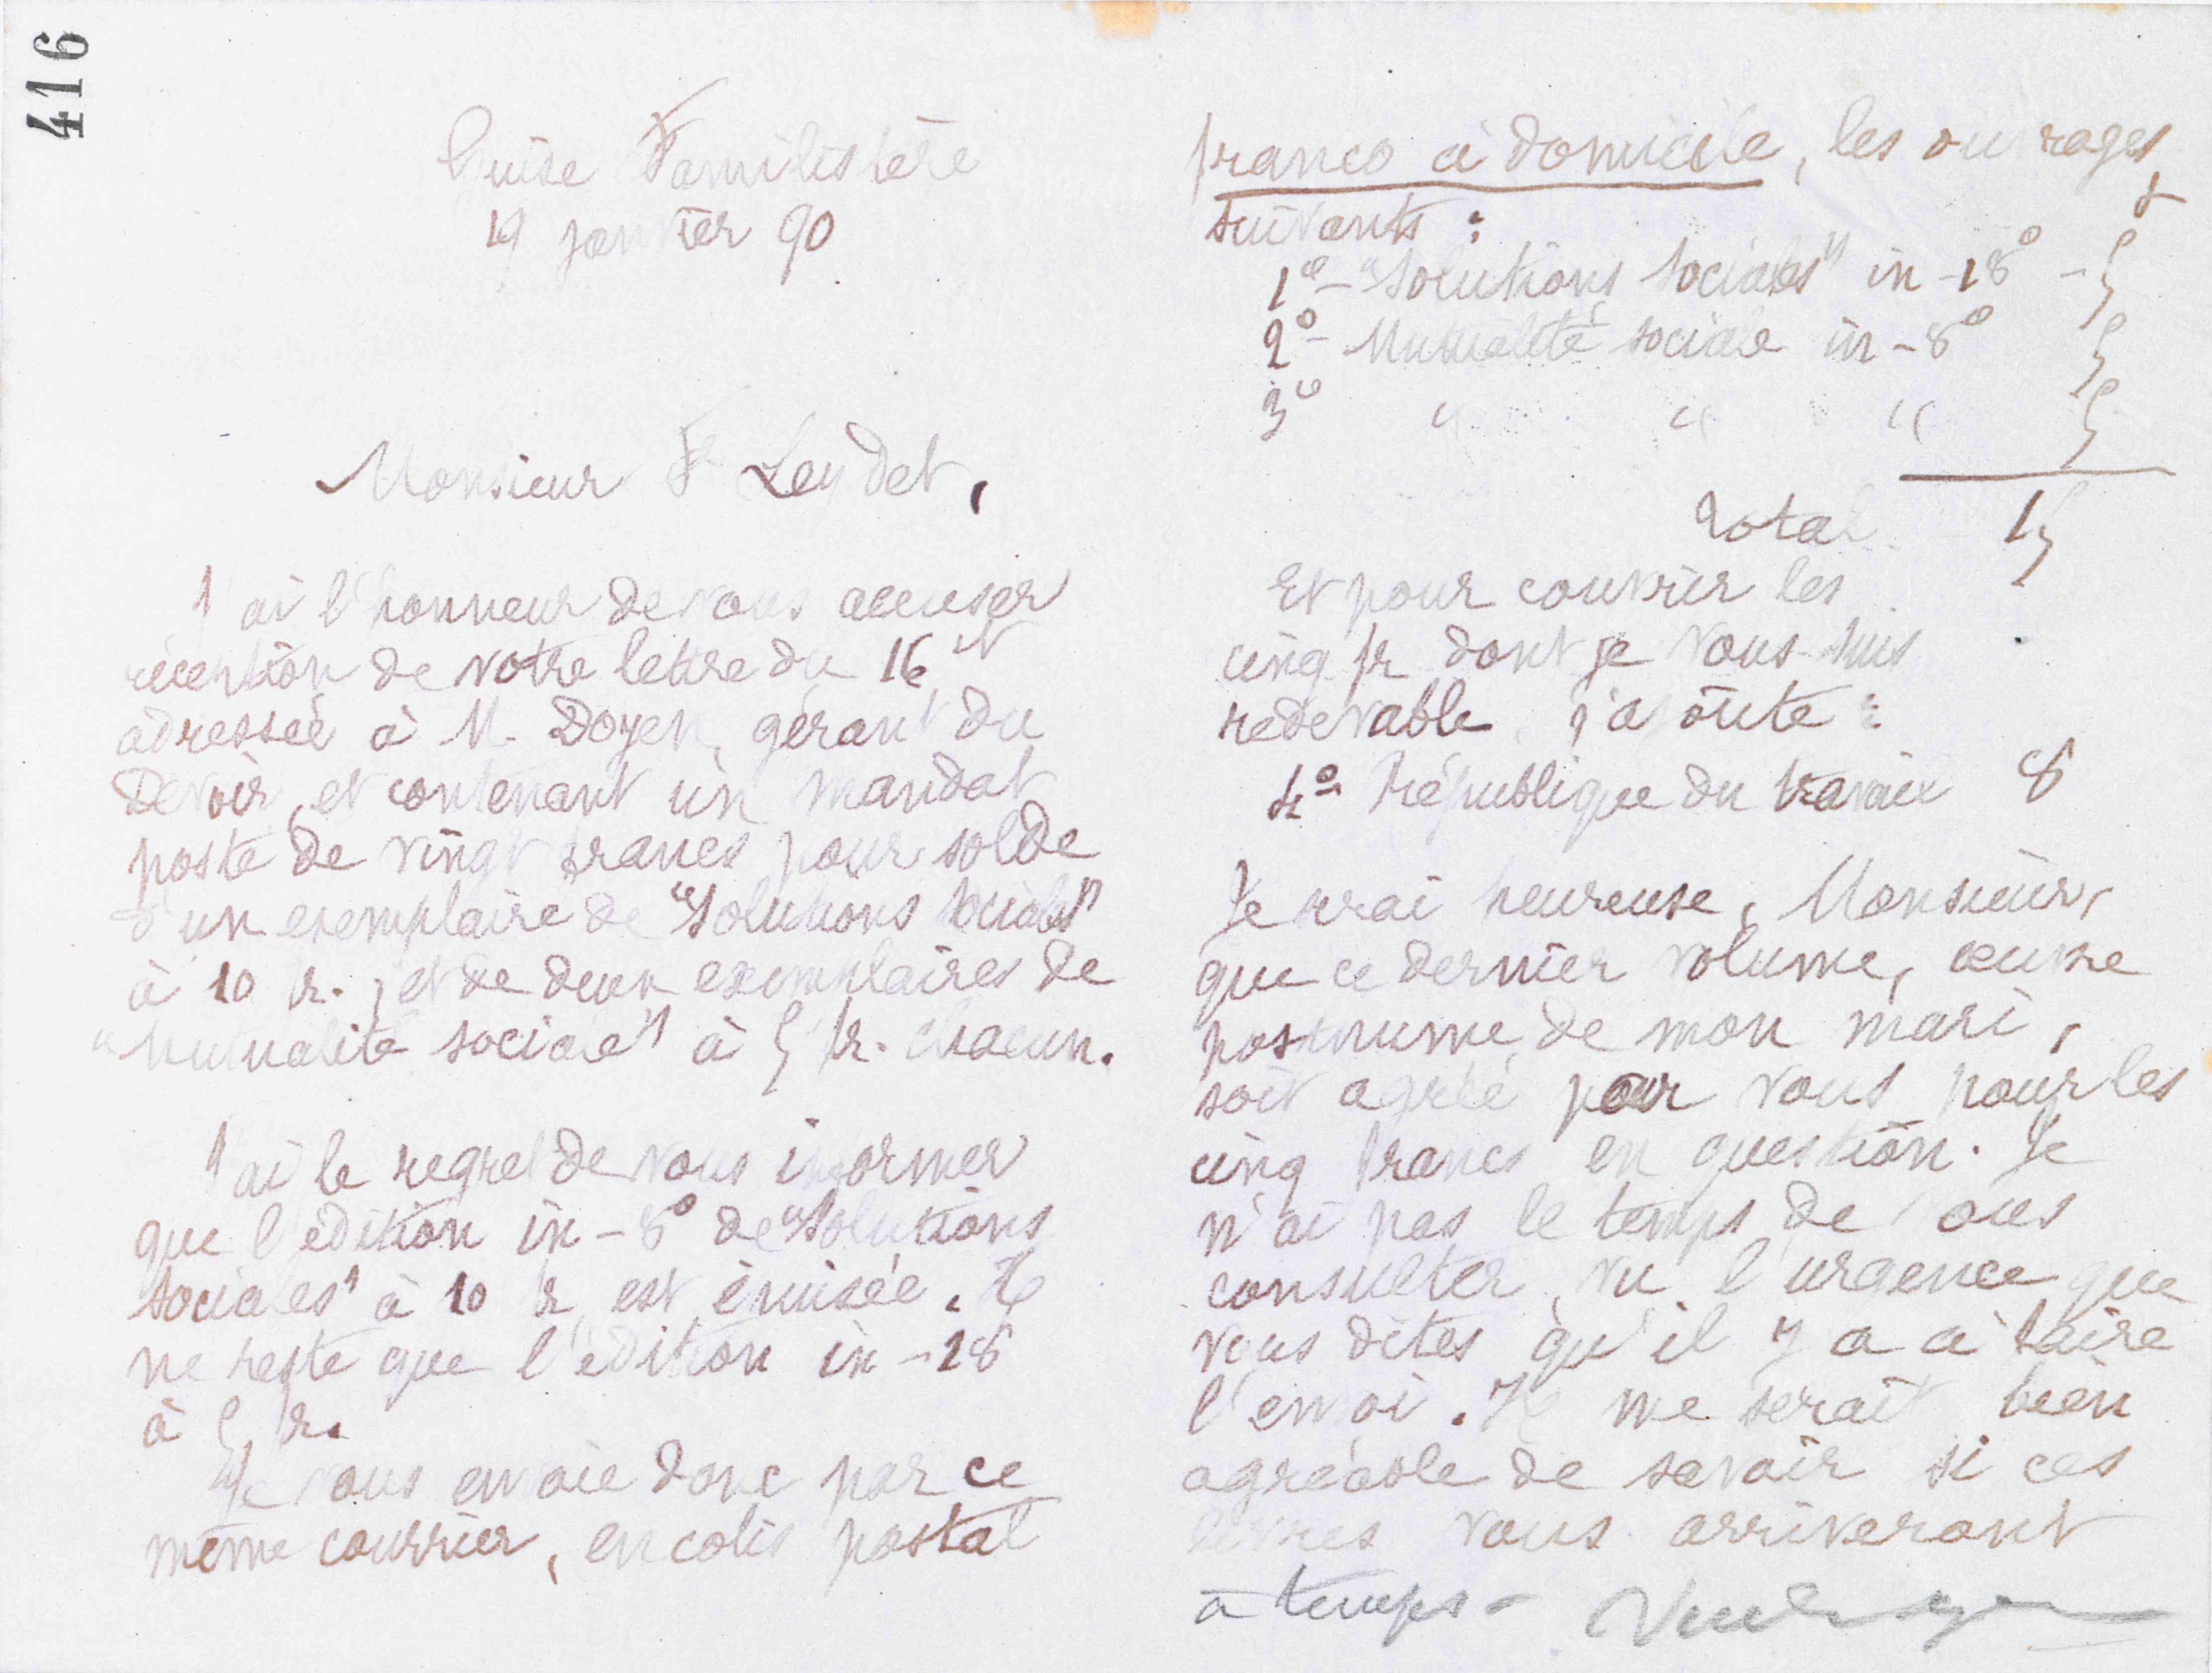 416
Guise Familistère
19 janvier 90
Monsieur F Leydet,
J'ai l'honneur de vous accuser
réception de votre lettre du 16 ct
adressée à M. Doyen, gérant du
Devoir, et contenant un mandat
poste de vingt francs pour solde
d'un exemplaire de "Solutions Sociales"
à 10 fr. ; et de deux exemplaires de
"Mutualité sociale" à 5 fr. chacun.
J'ai le regret de vous informer
que l'édition in-8° de "Solutions
Sociales" à 10 fr est épuisée. Il
ne reste que l'édition in-18
à 5 fr.
Je vous envoie donc par ce
même courrier, en colis postal
franco à domicile, les ouvrages
suivants :
1° - "Solutions Sociales" in-18° - 5
2° - Mutualité sociale in-8° 5
3° " " " 5
Total 15
Et pour couvrir les
cinq fr dont je vous suis
redevable, j'ajoute :
4° République du travail 8
Je serai heureuse, Monsieur,
que ce dernier volume, œuvre
posthume de mon mari,
soit agréé par vous pour les
cinq francs en question. Je
n'ai pas le temps de vous
consulter, vu l'urgence que
vous dites qu'il y a à faire
l'envoi. Il me serait bien
agréable de savoir si ces
livres vous arriveront
à temps -